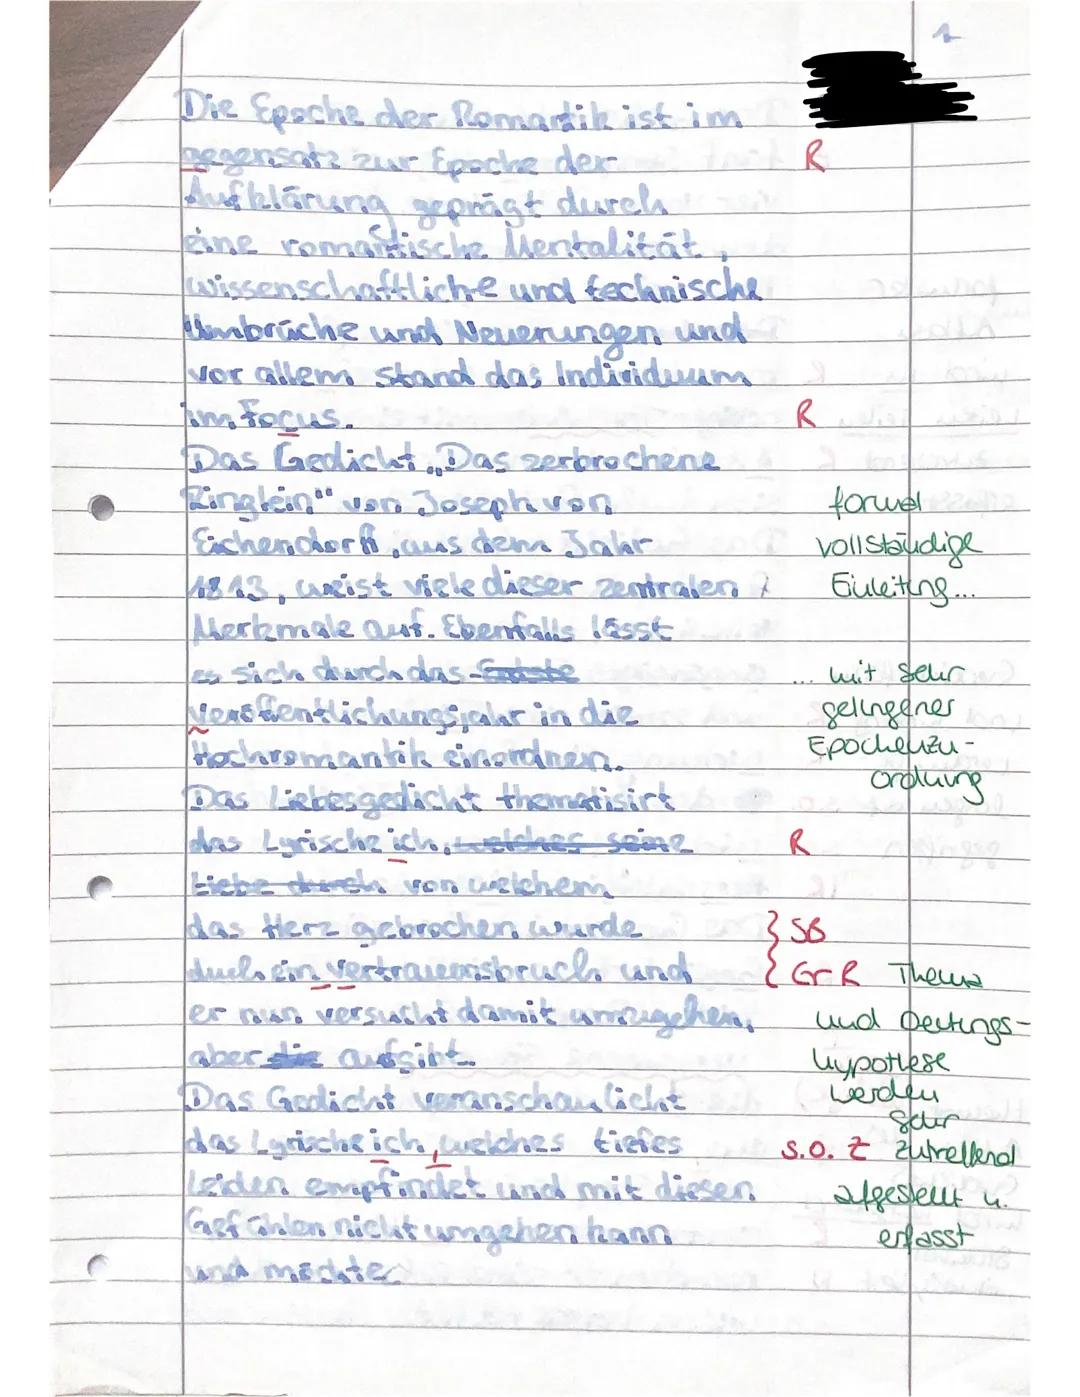 1
Die Epoche der Romantik ist im
gegensatz zur Epoche der R
Aufklärung geprägt durch
eine romantische Mentalität,
wissenschaftliche und technische
Umbrüche und Neuerungen und
vor allem stand das Individuum
im Focus. R
Das Gedicht „Das zerbrochene
Ringlein" von Joseph von formal
Eichendorff, aus dem Jahr vollständige
1813, weist viele dieser zentralen Einleitung...
Merkmale auf. Ebenfalls lässt
es sich durch das ... mit sehr
veröffentlichungsjahr in die gelungener
Hochromantik einordnen. Epochenzu-
ordnung
Das Liebesgedicht thematisirt
das Lyrische ich, welches seine R
Liebe durch von welchem
das Herz gebrochen wurde SB
duch ein vertrauensbruch und Gr R Thema
er nun versucht damit umzugehen, und Deutungs-
aber die aufgibt. hypothese
werden
Das Gedicht veranschaulicht sehr
das Lyrische ich, welches tiefes s.o. Z zutreffend
Leiden empfindet und mit diesen aufgestellt u.
Gefühlen nicht umgehen kann erfasst
und möchte.